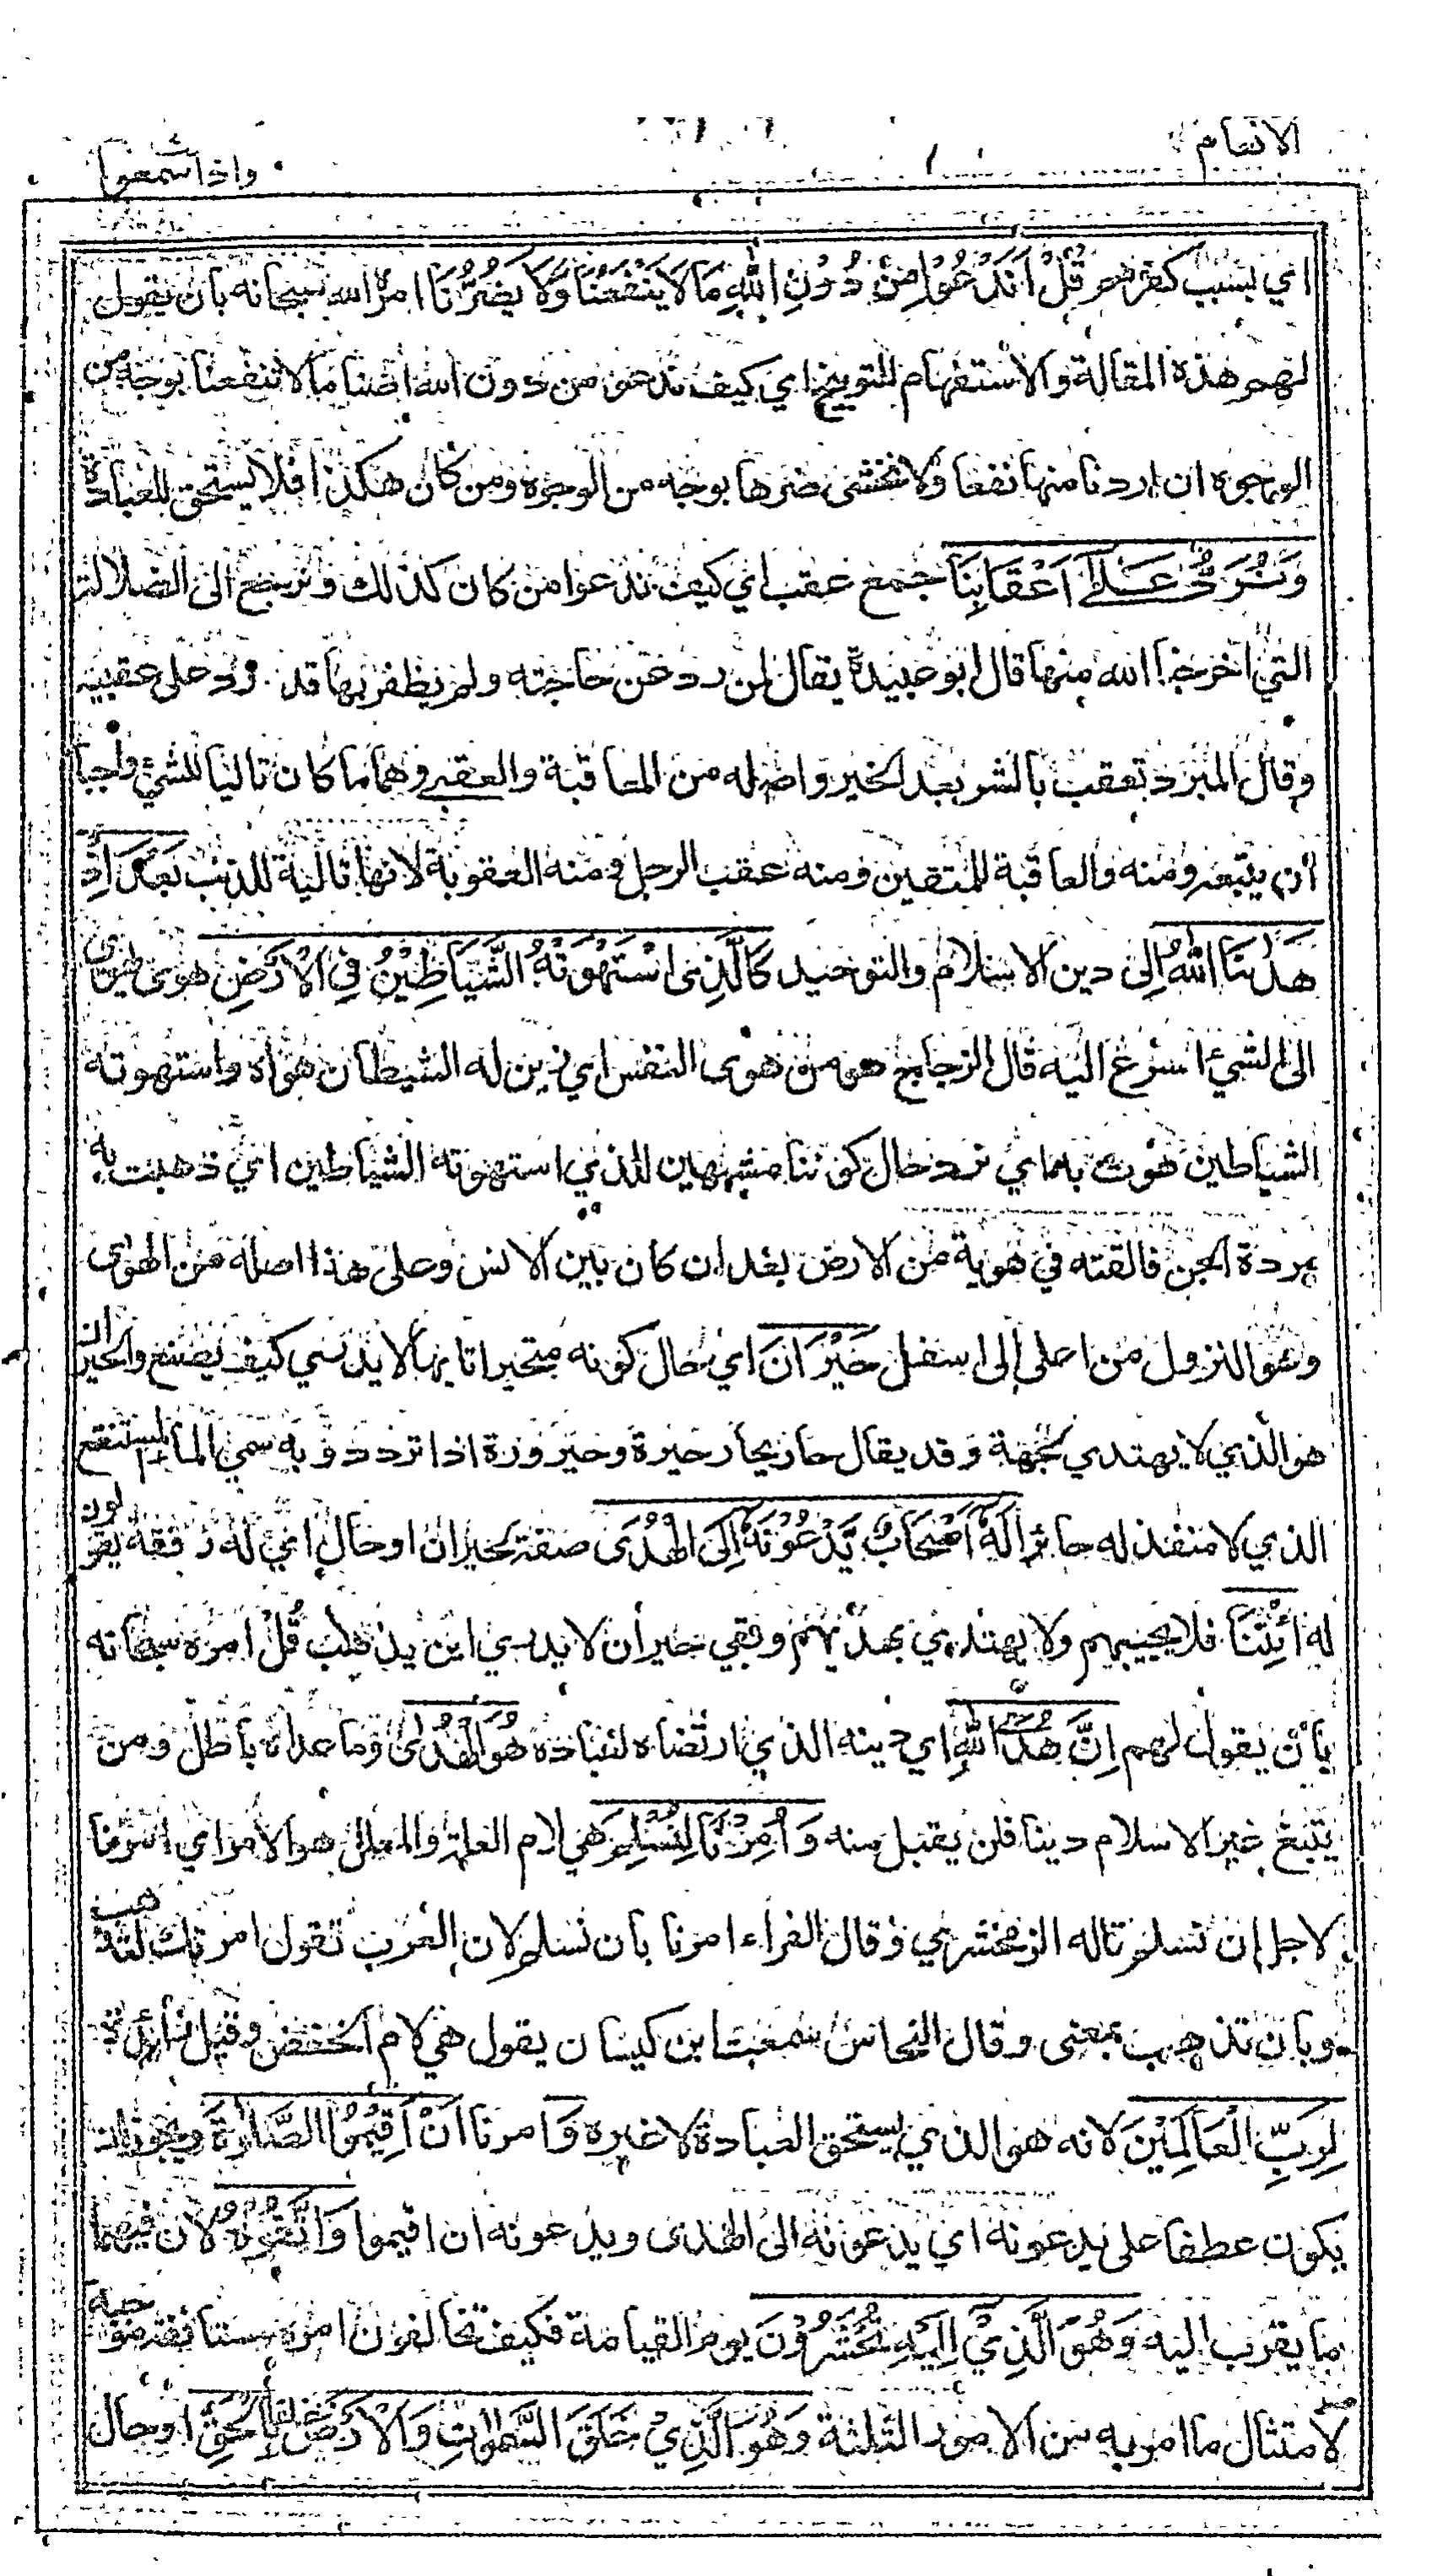 الانعام
واذا سمعوا
اي بسبب كفرهم قُلْ اَنَدْعُوْا مِنْ دُوْنِ اللّٰهِ مَا لَا يَنْفَعُنَا وَلَا يَضُرُّنَا امره الله سبحانه بان يقول
لهم هذه المقالة والاستفهام للتوبيخ اي كيف ندعو من دون الله اصناما لا تنفعنا بوجه من
الوجوه ان اردنا منها نفعا ولا نخشى ضرها بوجه من الوجوه ومن كان هكذا فلا يستحق للعبادة
وَنُرَدُّ عَلٰٓى اَعْقَابِنَا جمع عقب اي كيف ندعوا من كان كذلك ونرجع الى الضلالة
التي اخرجنا الله منها قال ابو عبيدة يقال لمن رد عن حاجته ولم يظفر بها قد رد على عقبيه
وقال المبرد تعقب بالشر بعد الخير واصله من المعاقبة والعقبى وهما ما كان تاليا للشيء واجبا
ان يتبعه ومنه والعاقبة للمتقين ومنه عقب الرجل ومنه العقوبة لانها تالية للذنب بَعْدَ اِذْ
هَدٰىنَا اللّٰهُ الى دين الاسلام والتوحيد كَالَّذِى اسْتَهْوَتْهُ الشَّيَاطِيْنُ فِي الْاَرْضِ هوى يهوي
الى الشيء اسرع اليه قال الزجاج هو من هوى النفس اي زين له الشيطان هواه واستهوته
الشياطين هوت به اي نرد حال كوننا مشبهين للذي استهوته الشياطين اي ذهبت به
مردة الجن فالقته في هوية من الارض بعد ان كان بين الانس وعلى هذا اصله من الهوى
وهو النزول من اعلى الى اسفل حَيْرَانَ اي حال كونه متحيرا تايها لا يدري كيف يصنع والحيران
هو الذي لا يهتدي لجهة وقد يقال حار يحار حيرة وحيرورة اذا تردد وبه سمي الماء المستنقع
الذي لا منفذ له حائرا لَهٗٓ اَصْحَابٌ يَّدْعُوْنَهٗٓ اِلَى الْهُدَى صفة لحيران او حال اي له رفقة يقولون
له ائْتِنَا فلا يجيبهم ولا يهتدي بهديهم وبقي حيران لا يدري اين يذهب قُلْ امره سبحانه
بأن يقول لهم اِنَّ هُدَى اللّٰهِ اي دينه الذي ارتضاه لعباده هُوَ الْهُدٰى وما عداه باطل ومن
يتبغ غير الاسلام دينا فلن يقبل منه وَاُمِرْنَا لِنُسْلِمَ هي لام العلة والمعلل هو الامر اي امرنا
لاجل ان نسلم قاله الزمخشري وقال الفراء امرنا بان نسلم لان العرب تقول امرتك لتذهب
وبان تذهب بمعنى وقال النحاس سمعت ابن كيسان يقول هي لام الخفض وقيل زائدة
لِرَبِّ الْعَالَمِيْنَ لانه هو الذي يستحق العبادة لا غيره وَامرنا اَنْ اَقِيْمُوا الصَّلٰوةَ ويجوز ان
يكون عطفا على يدعونه اي يدعونه الى الهدى ويدعونه ان اقيموا وَاتَّقُوْهُ لان فيهما
ما يقرب اليه وَهُوَ الَّذِيْٓ اِلَيْهِ تُحْشَرُوْنَ يوم القيامة فكيف تخالفون امره مستانفة موجبة
لامتثال ما امر به من الامور الثلثة وَهُوَ الَّذِيْ خَلَقَ السَّمٰوٰتِ وَالْاَرْضَ خلقا بِالْحَقِّ او حال